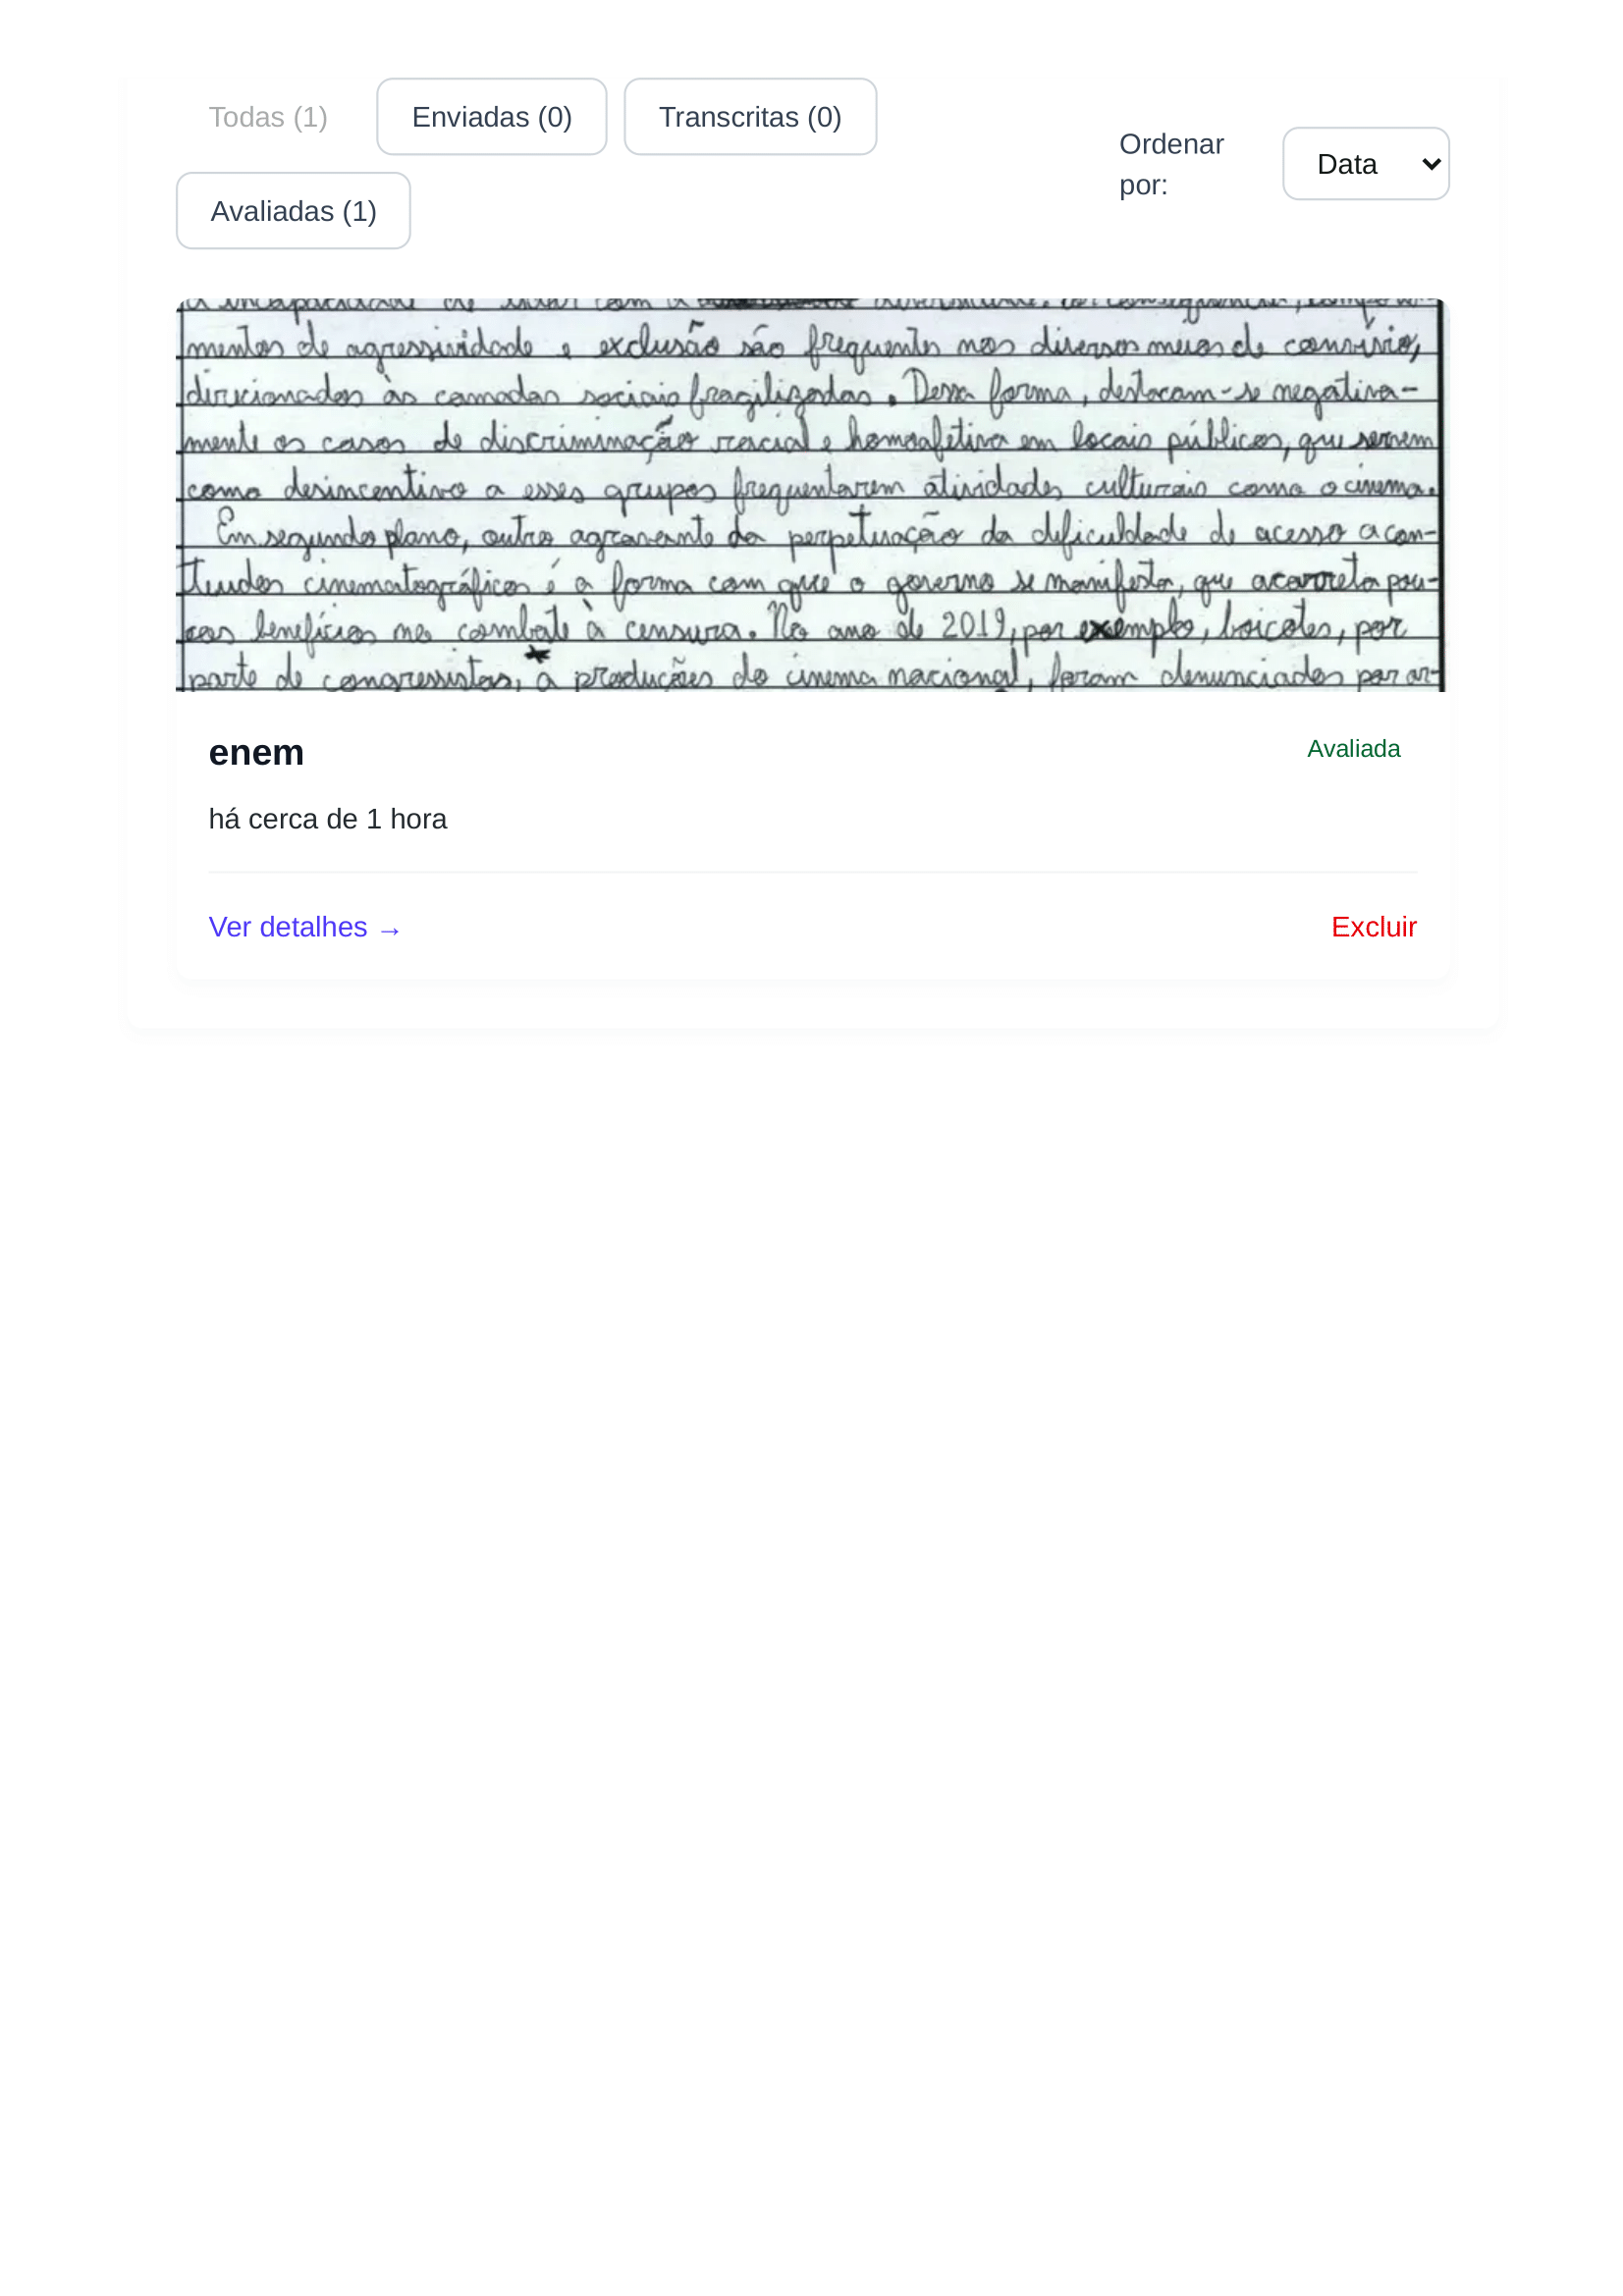 Todas (1)
Enviadas (0)
Transcritas (0)
Ordenar
por:
Data
Avaliadas (1)
a incapacidade de lidar com a
mentos de agressividade e exclusão são frequentes nos diversos meios de convívio,
direcionados às camadas sociais fragilizadas. Dessa forma, destacam-se negativa-
mente os casos de discriminação racial e homoafetiva em locais públicos, que servem
como desincentivo a esses grupos frequentarem atividades culturais como o cinema.
Em segundo plano, outro agravante da perpetuação da dificuldade de acesso a con-
teúdos cinematográficos é a forma com que o governo se manifesta, que acarreta pou-
cos benefícios no combate à censura. No ano de 2019, por exemplo, boicotes, por
parte de congressistas, a produções do cinema nacional, foram denunciados por ar-
enem
Avaliada
há cerca de 1 hora
Ver detalhes →
Excluir